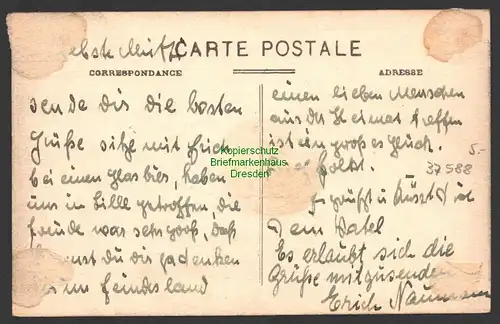 Liebste Mutti
CARTE POSTALE
CORRESPONDANCE
ADRESSE
sende dir die besten
Grüße sitze mit Erich
bei einen Glas bier, haben
uns in Lille getroffen, die
freude war sehr groß, daß
du dir gedenken
im feindesland
einen lieben Menschen
aus der Heimat treffen
ist ein großes Glück.
folgt.
grüßt u küsst
Dein Vatel
Es erlaubt sich die
Grüße mitzusenden
Erich Naumann
5.-
37588
Kopierschutz
Briefmarkenhaus
Dresden